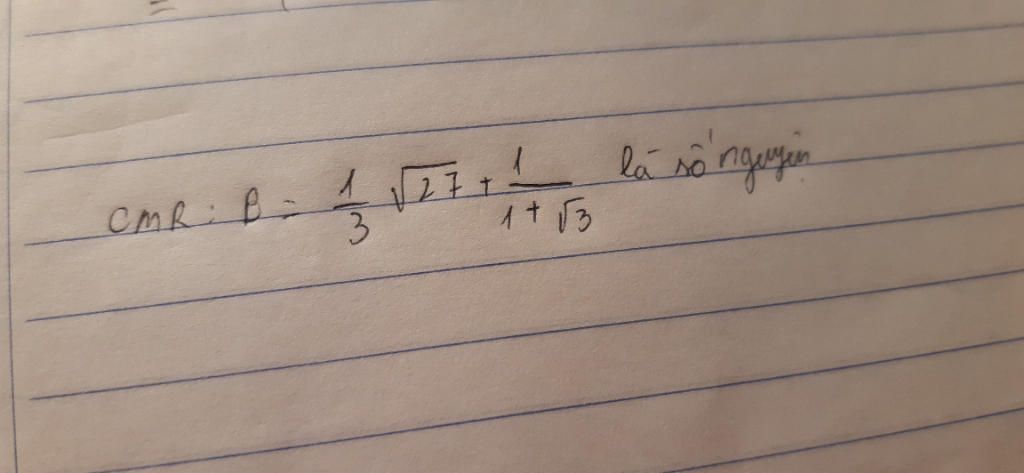 CMR : B = \frac{1}{3} \sqrt{27} + \frac{1}{1 + \sqrt{3}} là số nguyên